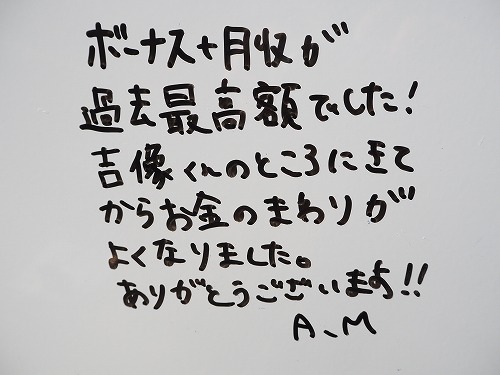 ボーナス+月収が
過去最高額でした!
吉像くんのところにきて
からお金のまわりが
よくなりました。
ありがとうございます!!
A、M